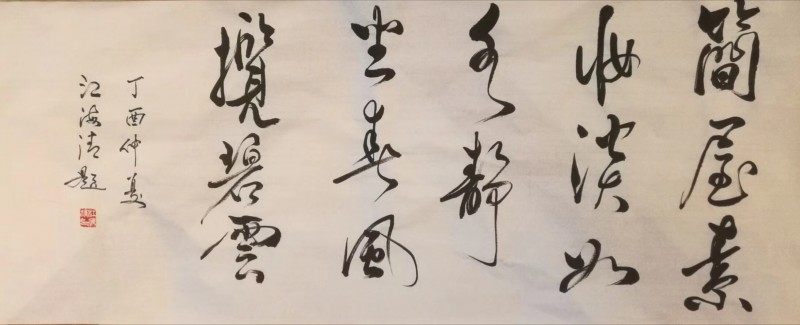 簡屋素
妝淡如
水靜
坐春風
攬碧雲
丁酉仲夏
江海清題